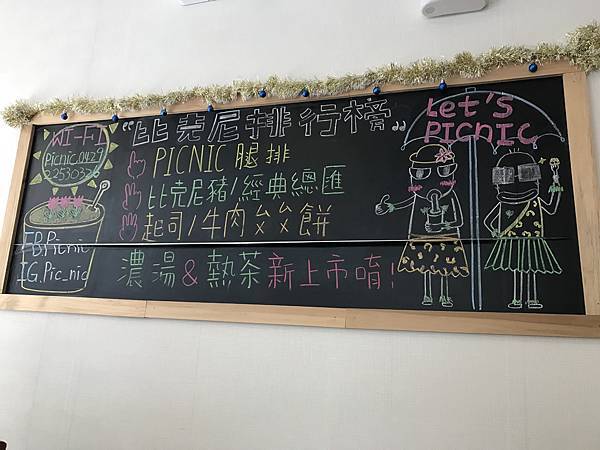 WI-FI
Picnic.0429
22530326
FB.Picnic
IG.Pic_nic
"比克尼排行榜"
PICNIC 腿排
比克尼豬/經典總匯
起司/牛肉ㄠㄠ餅
濃湯&熱茶新上市唷!
Let's
PICNIC